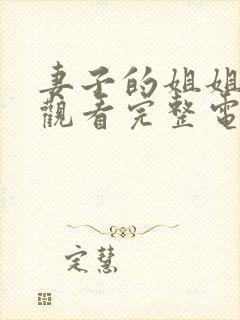 妻子的姐姐
觀看完整電
定慧